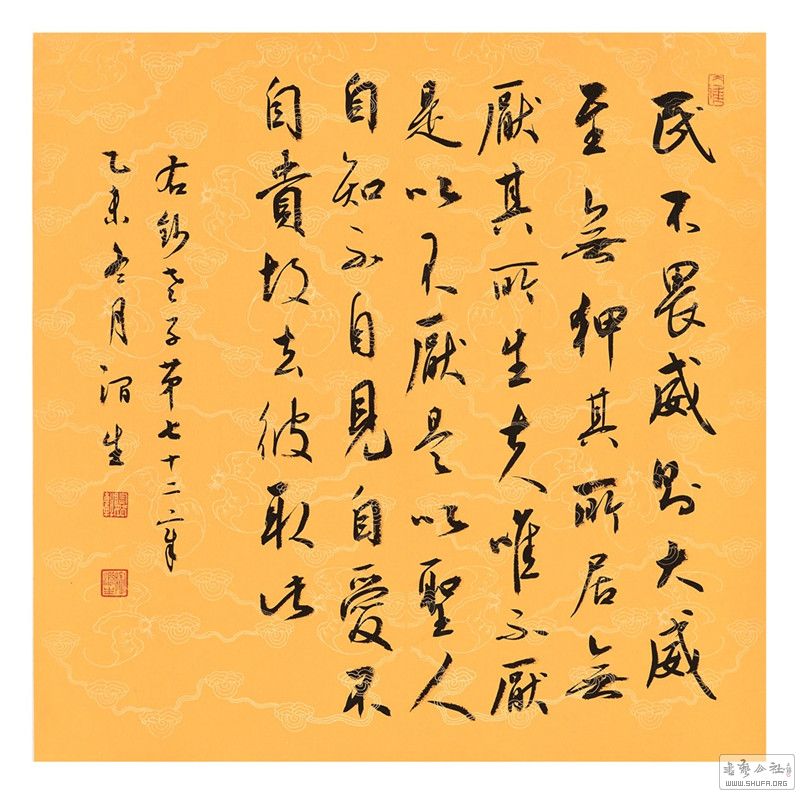 民不畏威則大威
至無狎其所居無
厭其所生夫唯不厭
是以不厭是以聖人
自知不自見自愛不
自貴故去彼取此
右鈔老子第七十二章
乙未冬月生
書藝公社
WWW.SHUFA.ORG